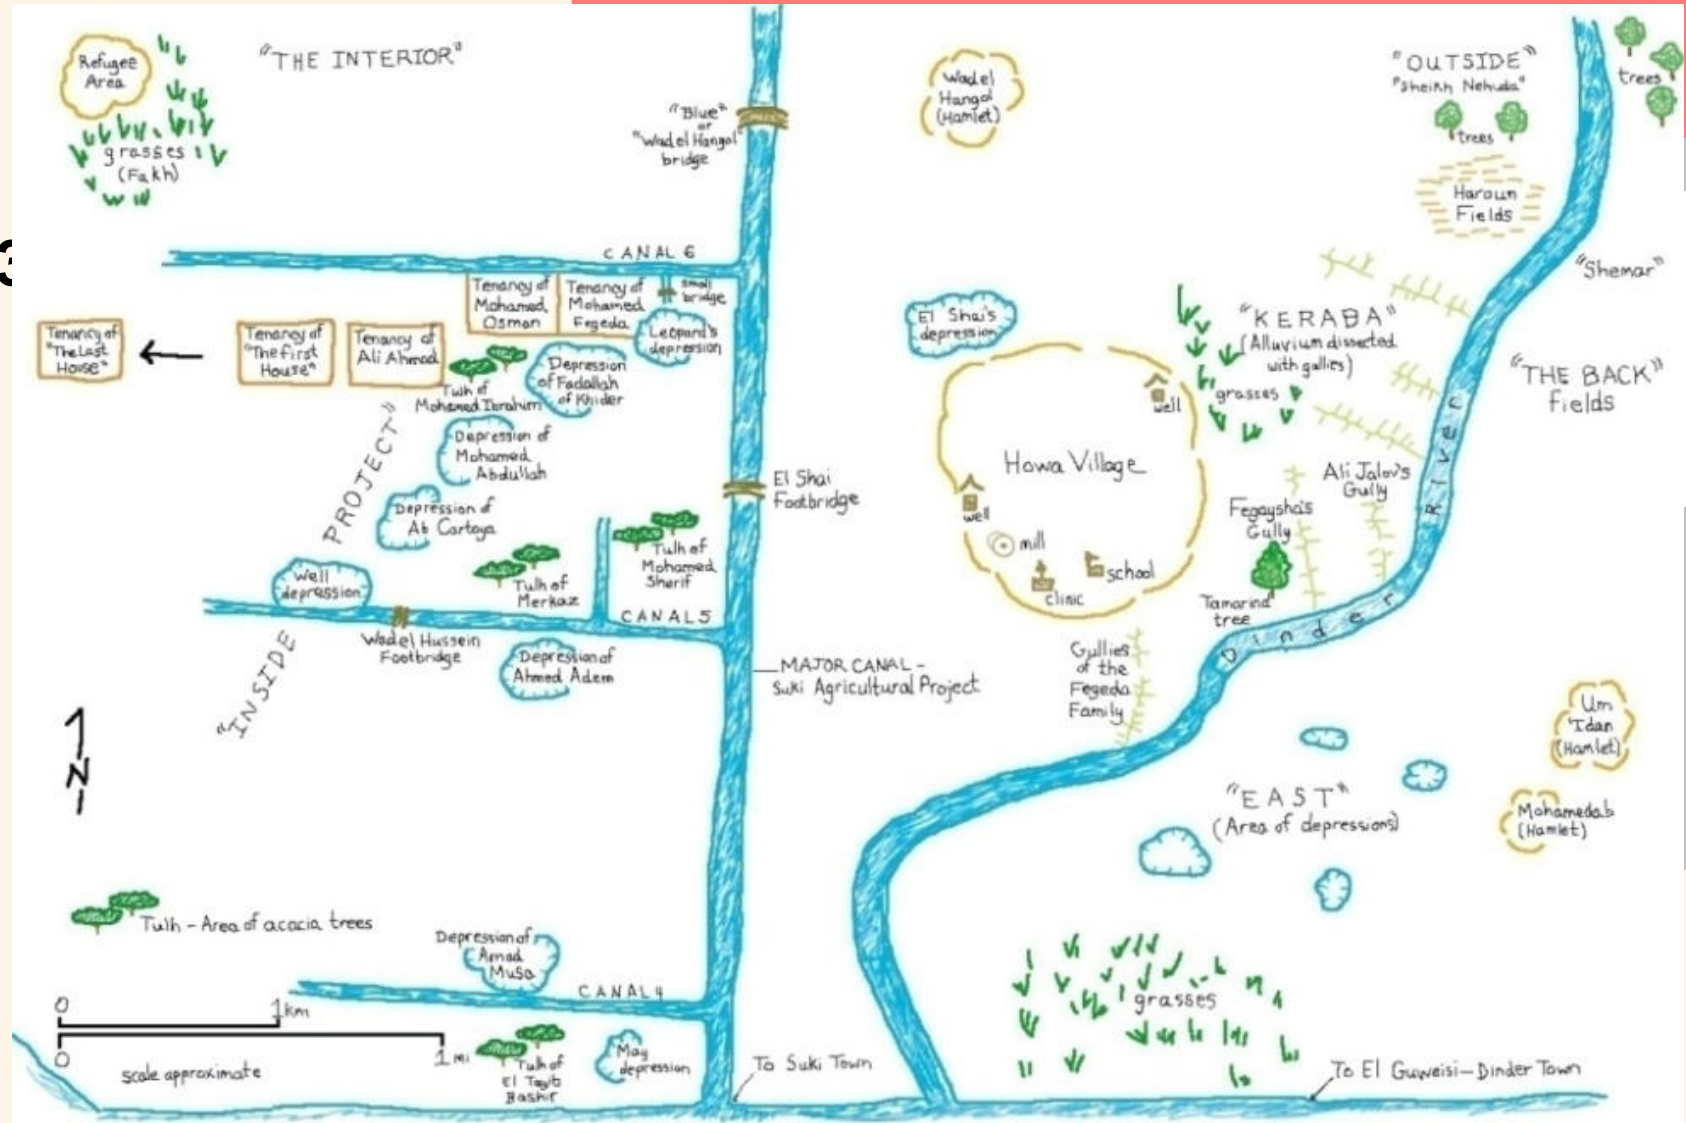 Refugee
Area
"THE INTERIOR"
grasses
(Fakh)
"Blue"
or
"Wad el Hangol"
bridge
Wadel
Hangol
(Hamlet)
"OUTSIDE"
"Sheikh Nehuda"
trees
trees
Haroun
Fields
"Shemar"
3
CANAL 6
Tenancy of
Mohamed
Osman
Tenancy of
Mohamed
Fegeda
small
bridge
Leopard's
depression
Tenancy of
"The Last
House"
Tenancy of
"The first
House"
Tenancy of
Ali Ahmad
Tulh of
Mohamed Ibrahim
Depression
of Fadallah
of Khider
El Shai's
depression
"KERABA"
(Alluvium dissected
with gullies)
grasses
"THE BACK"
fields
well
Howa Village
well
mill
clinic
school
Depression of
Mohamed
Abdullah
Depression of
Ab Cartoya
"INSIDE PROJECT"
El Shai
Footbridge
Ali Jalov's
Gully
Fegaysha's
Gully
Tamarind
tree
Dinder River
Well
depression
Tulh of
Merkaz
Tulh of
Mohamed
Sherif
CANAL 5
Wadel Hussein
Footbridge
Depression of
Ahmed Adem
MAJOR CANAL -
Suki Agricultural Project
Gullies
of the
Fegeda
Family
N
Um
'Idan
(Hamlet)
"EAST"
(Area of depressions)
Mohamedab
(Hamlet)
Tulh - Area of acacia trees
Depression of
Amad
Musa
CANAL 4
grasses
0
1 km
0
1 mi
scale approximate
Tulh of
El Tayib
Bashir
May
depression
To Suki Town
To El Guweisi-Dinder Town